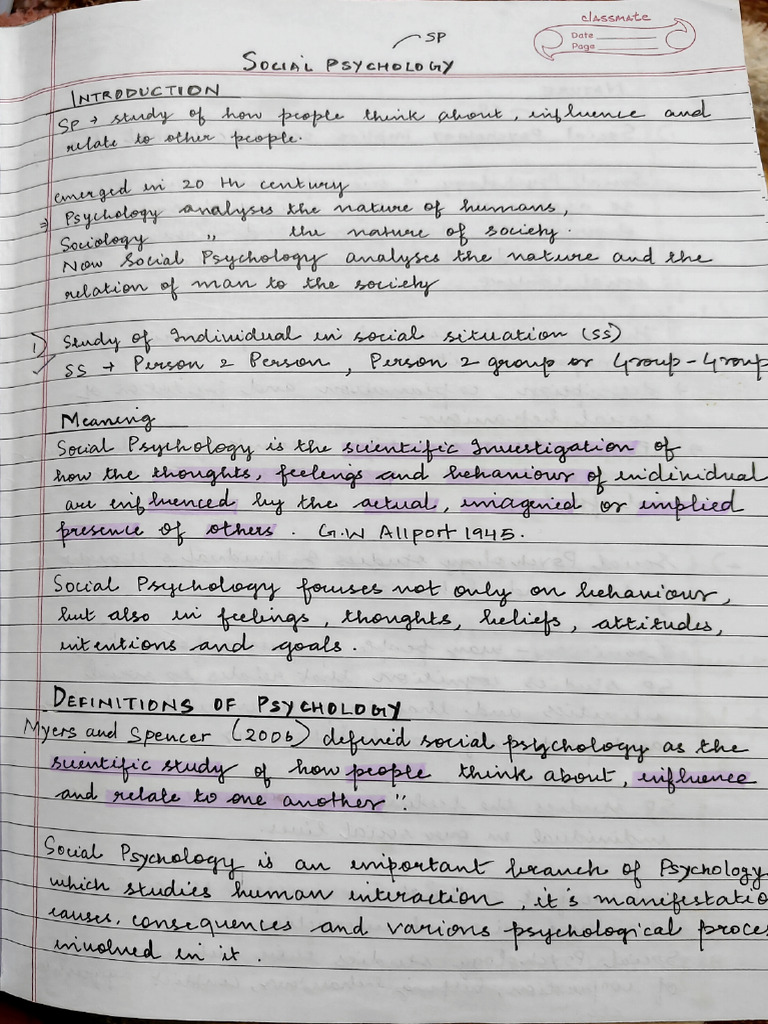 classmate
Date
Page
SP
SOCIAL PSYCHOLOGY
INTRODUCTION
SP → study of how people think about, influence and
relate to other people.
emerged in 20 th century
⇒ Psychology analyses the nature of humans,
Sociology " the nature of society.
Now Social Psychology analyses the nature and the
relation of man to the society
1) Study of Individual in social situation (SS)
✓ SS → Person 2 Person, Person 2 group or Group-Group
Meaning
Social Psychology is the scientific Investigation of
how the thoughts, feelings and behaviour of inidividual
are influenced by the actual, imagenied or implied
presence of others. G.W Allport 1945.
Social Psychology focuses not only on behaviour,
but also in feelings, thoughts, beliefs, attitudes,
intentions and goals.
DEFINITIONS OF PSYCHOLOGY
Myers and Spencer (2006) defined social psychology as the
scientific study of how people think about, influence
and relate to one another".
Social Psychology is an important branch of Psychology
which studies human interaction, it's manifestatio
causes, consequences and various psychological proces
involved in it.